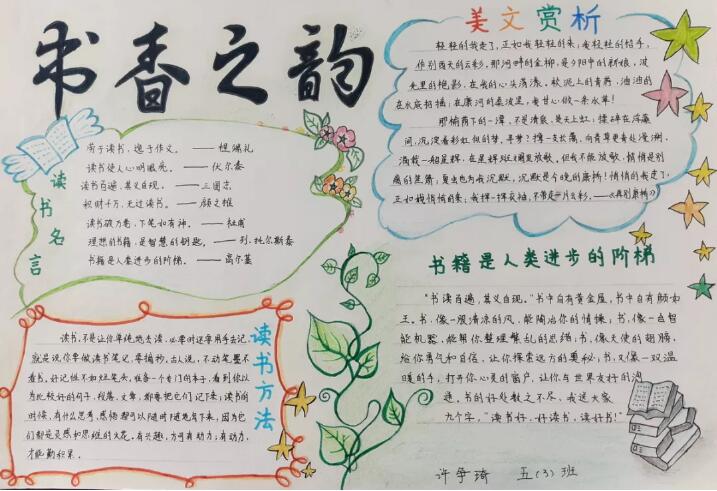 书香之韵
读书名言
劳于读书，逸于作文。——程端礼
读书使人心明眼亮。——伏尔泰
读书百遍，其义自现。——三国志
积财千万，无过读书。——颜之推
读书破万卷，下笔如有神。——杜甫
理想的书籍，是智慧的钥匙。——列.托尔斯泰
书籍是人类进步的阶梯。——高尔基
美文赏析
轻轻的我走了，正如我轻轻的来，我轻轻的招手，
作别西天的云彩，那河畔的金柳，是夕阳中的新娘，波
光里的艳影，在我的心头荡漾。软泥上的青荇，油油的
在水底招摇，在康河的柔波里，我甘心做一条水草！
那榆荫下的一潭，不是清泉，是天上虹，揉碎在浮藻
间，沉淀着彩虹似的梦。寻梦？撑一支长篙，向青草更青处漫溯，
满载一船星辉，在星辉斑斓里放歌。但我不能放歌，悄悄是别
离的笙箫；夏虫也为我沉默，沉默是今晚的康桥！悄悄的我走了，
正如我悄悄的来，我挥一挥衣袖，不带走一片云彩。——《再别康桥》
读书方法
读书，不是让你单纯地去读，必要时还要用手去记，
就是说你要做读书笔记，要摘抄。古人说，不动笔墨不
看书。好记性不如烂笔头，准备一个专门的本子，看到你认
为比较好的句子，段落，文章，都要把它们记下来，读书的
时候，有什么思考，感悟都可以随时随笔写下来，因为它
们都是灵感和思维的火花。有兴趣，方可有动力；有动力，
才能勤积累。
书籍是人类进步的阶梯
“书读百遍，其义自现。”书中自有黄金屋，书中自有颜如
玉。书，像一股清凉的风，能陶冶你的情操；书，像一台智
能机器，能帮你整理紊乱的思绪；书，像天使的翅膀，
给你勇气和自信，让你探索远方的奥秘；书，又像一双温
暖的手，打开你心灵的窗户，让你与世界友好的沟
通。书的好处数之不尽，我送大家
九个字，“读书好，好读书，读好书！”
许争琦 五（3）班